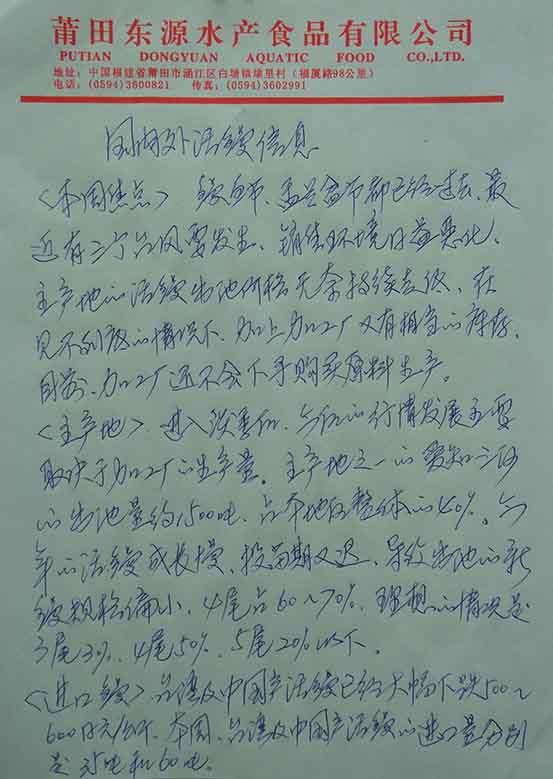 莆田东源水产食品有限公司
PUTIAN DONGYUAN AQUATIC FOOD CO.,LTD.
地址：中国福建省莆田市涵江区白塘镇埭里村（福厦路98公里）
电话：(0594)3600821 传真：(0594)3602991
国内外活鳗信息
<本周焦点> 鳗白节、盂兰盆节都已经过去、最
近有三个台风要发生、销售环境日益恶化、
主产地の活鳗出池价格无奈持续走低、在
见不到底の情况下、加上加工厂又有相当の库存、
目前、加工厂还不会下手购买原料生产。
<主产地> 进入淡季后、今后の行情发展主要
取决于加工厂の生产量。主产地之一の爱知三河
の出池量约1500吨、占本地区整体の40%。今
年の活鳗成长慢、投苗期又迟、导致出池の新
鳗规格偏小、4尾占60~70%、理想の情况是
3尾3%、4尾50%、5尾20%以下。
<进口鳗> 台湾及中国产活鳗已经大幅下跌500~
600日元/公斤、本周、台湾及中国产活鳗の进口量分别
是35吨和60吨。